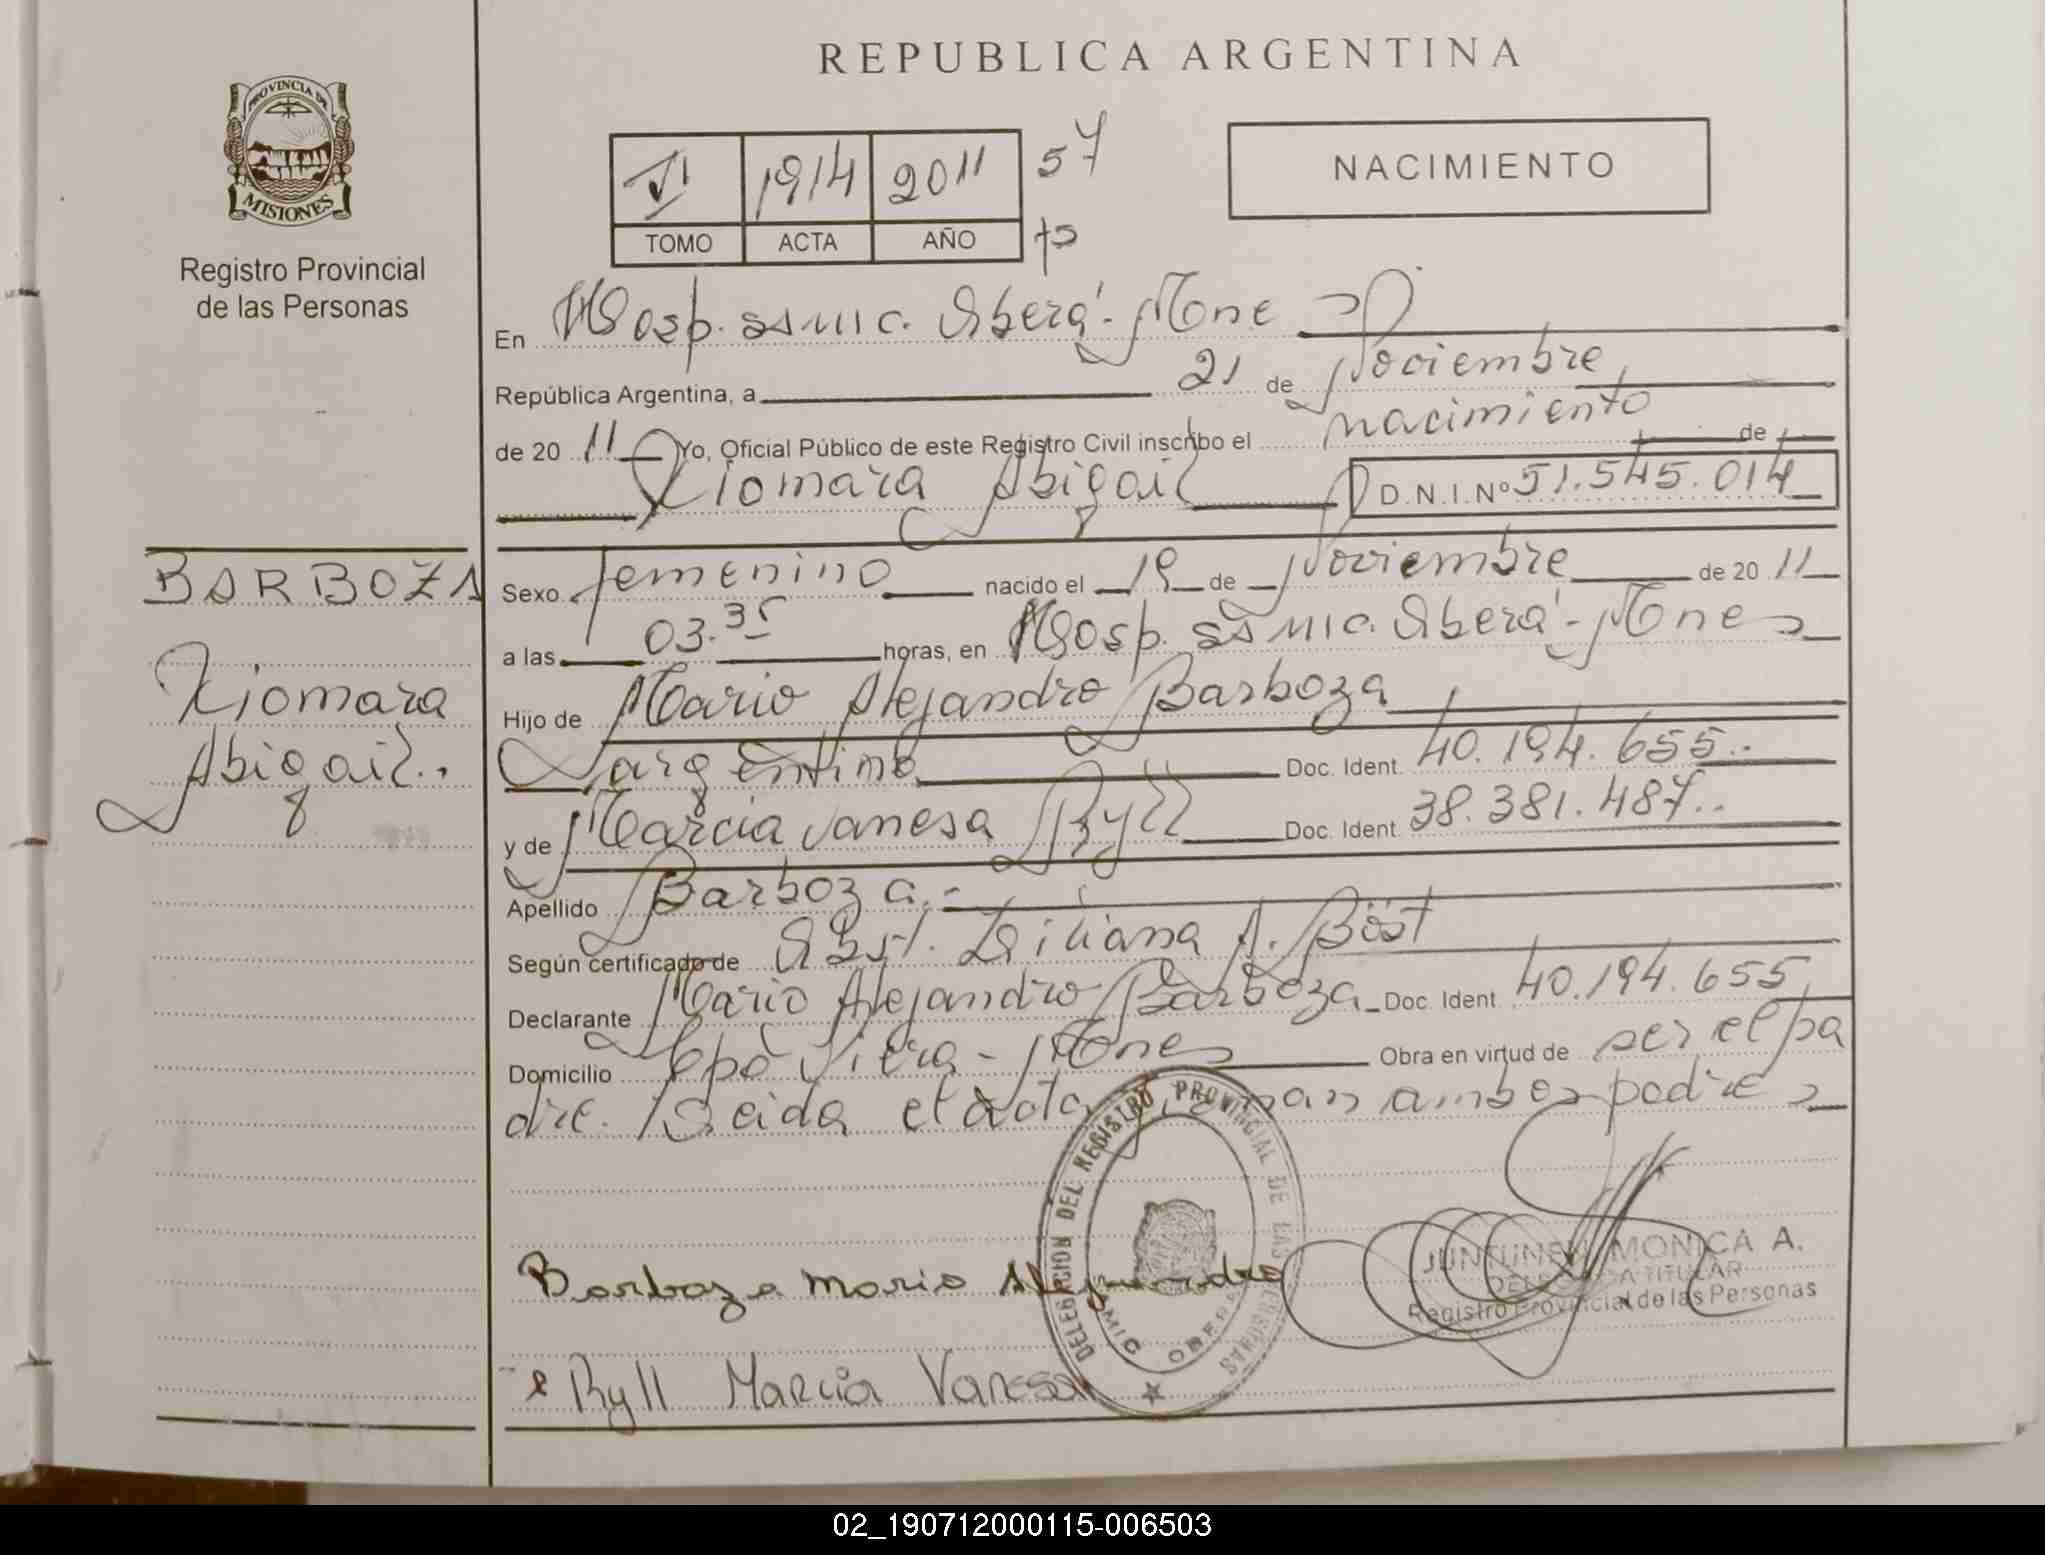 REPUBLICA ARGENTINA
PROVINCIA DE
MISIONES
Registro Provincial
de las Personas
VI 1914 2011 57
TOMO ACTA AÑO
NACIMIENTO
En Hosp. SAMIC. Oberá - Mnes
República Argentina, a 21 de Noviembre
de 2011 Yo, Oficial Público de este Registro Civil inscribo el nacimiento de
Xiomara Abigail D.N.I.Nº 51.545.014
BARBOZA
Xiomara
Abigail..
Sexo femenino nacido el 19 de Noviembre de 2011
a las 03.35 horas, en Hosp. SAMIC. Oberá - Mnes
Hijo de Mario Alejandro Barboza
argentino Doc. Ident. 40.194.655..
y de Marcia Vanesa Ryll Doc. Ident. 38.381.487..
Apellido Barboza.-
Según certificado de Obst. Liliana A. Böst
Declarante Mario Alejandro Barboza Doc. Ident. 40.194.655
Domicilio Cpo Viera - Mnes Obra en virtud de ser el pa
dre. Leida el acta firman ambos padres
DELEGACION DEL REGISTRO PROVINCIAL DE LAS PERSONAS
OBERA
Barboza Mario Alejandro
JUNTUNEN MONICA A.
DELEGADA TITULAR
Registro Provincial de las Personas
Ryll Marcia Vanesa
02_190712000115-006503